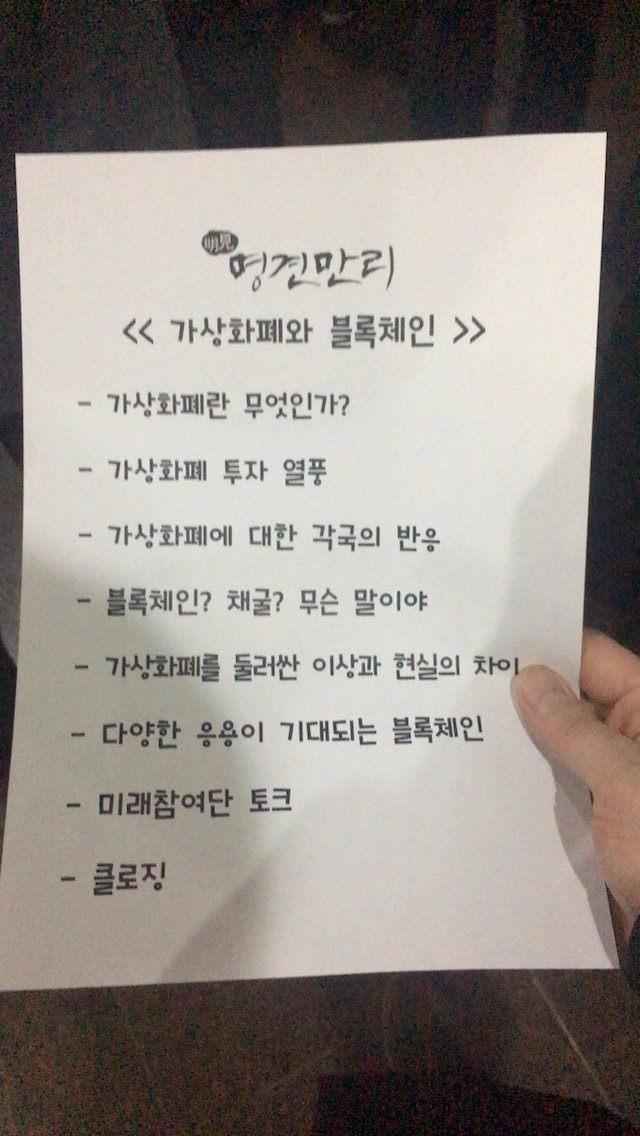 明見
명견만리
<< 가상화폐와 블록체인 >>
- 가상화폐란 무엇인가?
- 가상화폐 투자 열풍
- 가상화폐에 대한 각국의 반응
- 블록체인? 채굴? 무슨 말이야
- 가상화폐를 둘러싼 이상과 현실의 차이
- 다양한 응용이 기대되는 블록체인
- 미래참여단 토크
- 클로징